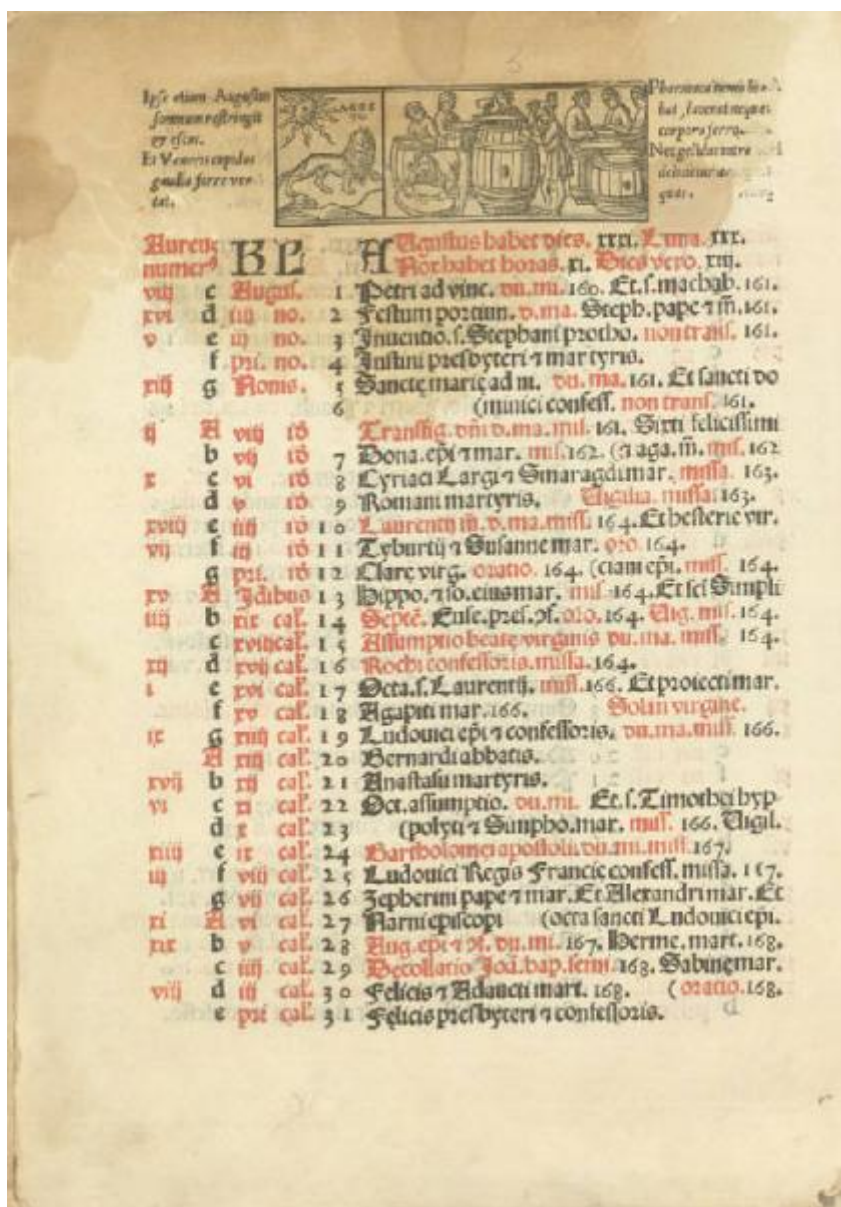 Ipse etiam Augustus
somnum restringit
et escas.
Et Veneris cupidos
gaudia ferre ve-
tat.
corpora ferro.
Nec gelidas intra
quas.
Aureus
numerꝰ KL AUgustus habet dies. xxxi. Luna. xxx.
Nox habet horas. xi. Dies vero. xiij.
viij c Augus. 1 Petri ad vinc. du. mi. 160. Et. s. machab. 161.
xvi d iiij no. 2 Festum portiun. d. ma. Steph. pape ⁊ m̄. 161.
v e iij no. 3 Inuentio. s. Stephani protho. non trans. 161.
f pri. no. 4 Iustini presbyteri ⁊ martyris.
xiij g Nonis. 5 Sanctę marię ad ni. du. ma. 161. Et sancti do
6 (minici confess. non trans. 161.
ij A viij id᷒ Transfig. dñi d. ma. mis. 161. Sixti felicissimi
b vij id᷒ 7 Dona. ep̄i ⁊ mar. mis. 162. (⁊ aga. m̄. mis. 162
x c vi id᷒ 8 Cyriaci Largi ⁊ Smaragdi mar. missa. 163.
d v id᷒ 9 Romani martyris. Uigilia. missa. 163.
xviij e iiij id᷒ 10 Laurentij m̄. d. ma. miss. 164. Et hesterie vir.
vij f iij id᷒ 11 Tyburtij ⁊ Susanne mar. oro 164.
g pri. id᷒ 12 Clarę virg. oratio. 164. (ciani ep̄i. miss. 164.
xv A Idibus 13 Hippo. ⁊ so. eius mar. mis 164. Et sc̄i Simpli
iiij b xix cal. 14 Septē. Euse. pres. ꝯf. oro. 164. Uig. mis. 164.
c xviij cal. 15 Assumptio beatę virginis du. ma. miss. 164.
xij d xvij cal. 16 Rochi confessoris. missa. 164.
i e xvi cal. 17 Octa. s. Laurentij. miss. 166. Et proiecti mar.
f xv cal. 18 Agapiti mar. 166. Solin virgine.
ix g xiiij cal. 19 Ludouici ep̄i ⁊ confessoris. du. ma. miss. 166.
A xiij cal. 20 Bernardi abbatis.
xvij b xij cal. 21 Anastasii martyris.
vi c xi cal. 22 Oct. assumptio. du. mi. Et. s. Timothei hyp
d x cal. 23 (polyti ⁊ Simpho. mar. miss. 166. Uigil.
xiiij e ix cal. 24 Bartholomęi apostoli. du. mi. miss. 167.
iij f viij cal. 25 Ludouici Regis Francie confess. missa. 167.
g vij cal. 26 Zepherini pape ⁊ mar. Et Alexandri mar. Et
xi A vi cal. 27 Narni episcopi (octa sancti Ludouici ep̄i.
xix b v cal. 28 Aug. ep̄i ⁊ ꝯf. du. mi. 167. Herme. mart. 168.
c iiij cal. 29 Decollatio Joā. bap. semi. 168. Sabinę mar.
viij d iij cal. 30 Felicis ⁊ Adaucti mart. 168. (oratio. 168.
e pri cal. 31 Fęlicis presbyteri ⁊ confessoris.